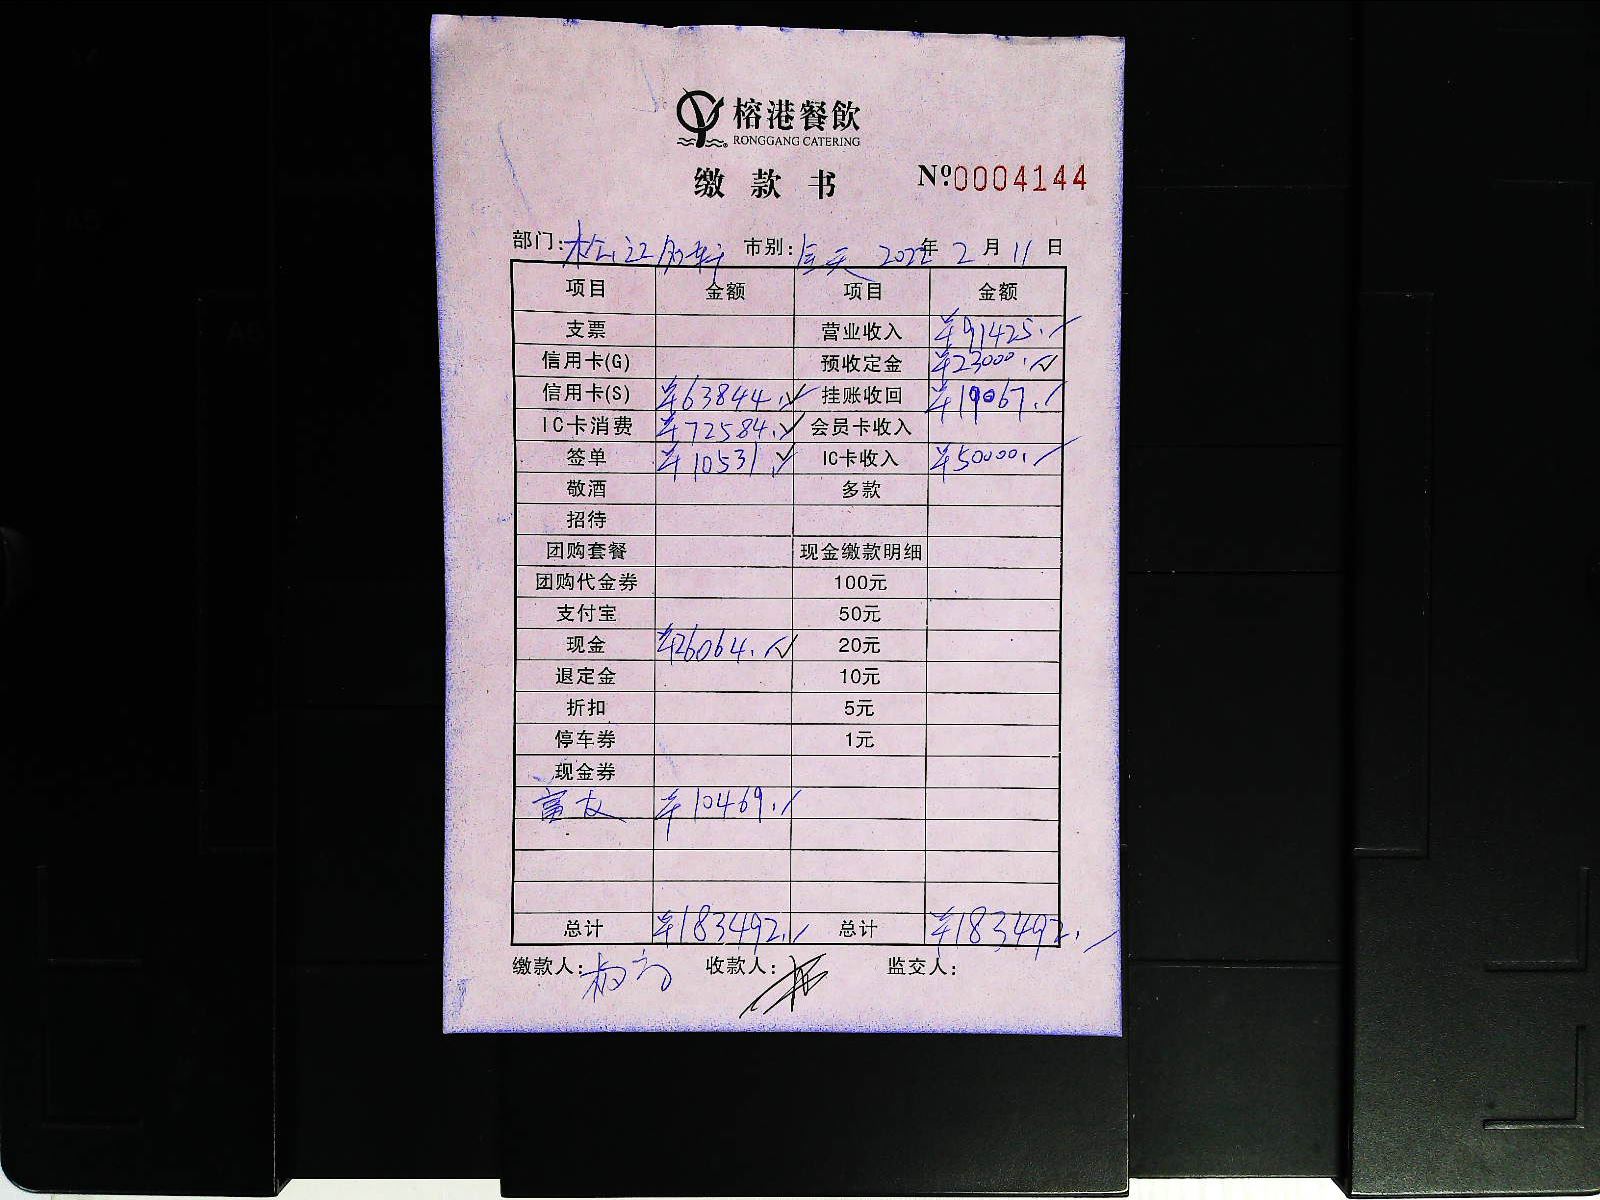 榕港餐飲
RONGGANG CATERING
缴款书 Nº 0004144
部门: 松江名轩 市别: 全天 2022年 2月 11日
项目 金额 项目 金额
支票 营业收入 ¥91425.
信用卡(G) 预收定金 ¥23000.
信用卡(S) ¥63844. 挂账收回 ¥19067.
IC卡消费 ¥72584. 会员卡收入
签单 ¥10531. IC卡收入 ¥50000.
敬酒 多款
招待
团购套餐 现金缴款明细
团购代金券 100元
支付宝 50元
现金 ¥26064. 20元
退定金 10元
折扣 5元
停车券 1元
现金券
富友 ¥10469.
总计 ¥183492. 总计 ¥183492.
缴款人: 收款人: 监交人: